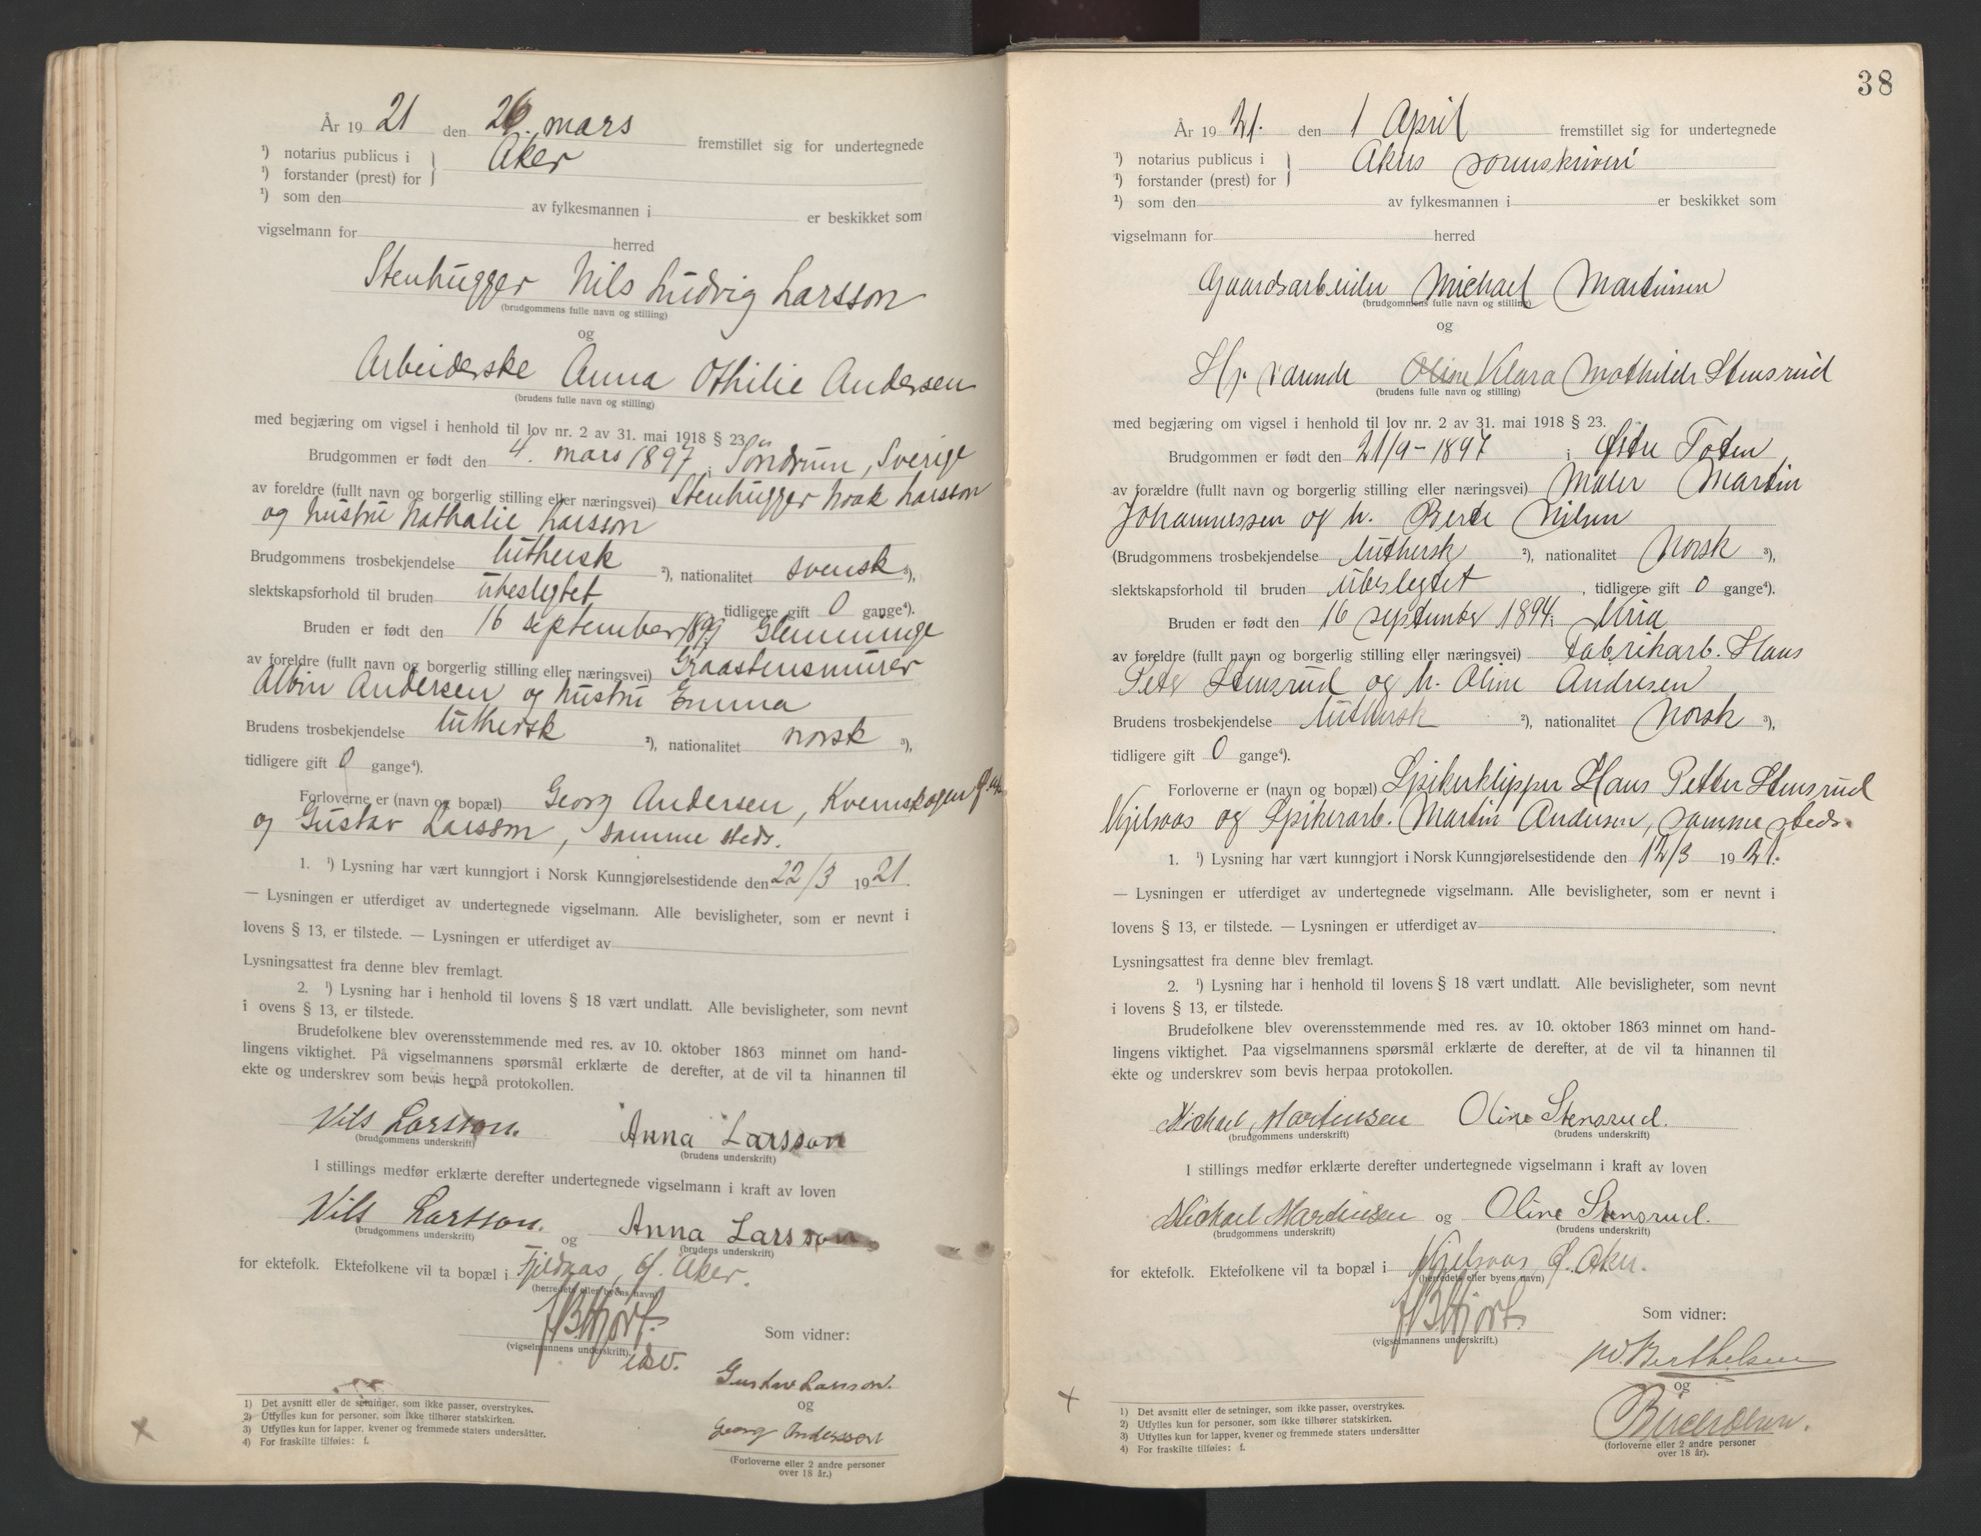 År 1921 den 26. mars fremstillet sig for undertegnede
¹) notarius publicus i } Aker
¹) forstander (prest) for
¹) som den av fylkesmannen i er beskikket som
vigselmann for herred
Stenhugger Nils Ludvig Larsson
(brudgommens fulle navn og stilling)
og
Arbeiderske Anna Othilie Andersen
(brudens fulle navn og stilling)
med begjæring om vigsel i henhold til lov nr. 2 av 31. mai 1918 § 23.
Brudgommen er født den 4. mars 1897 i Söndrum, Sverige
av foreldre (fullt navn og borgerlig stilling eller næringsvei) Stenhugger Noak Larsson
og hustru Nathalie Larsson
Brudgommens trosbekjendelse luthersk ²), nationalitet svensk ³),
slektskapsforhold til bruden ubeslegtet, tidligere gift 0 gange⁴).
Bruden er født den 16 september Glemminge
av foreldre (fullt navn og borgerlig stilling eller næringsvei) Graastensmurer
Albin Andersen og hustru Emma
Brudens trosbekjendelse luthersk ²), nationalitet norsk ³),
tidligere gift 0 gange⁴).
Forloverne er (navn og bopæl) Georg Andersen, Kvernskogen
og Gustav Larsson, samme steds.
1. ¹) Lysning har vært kunngjort i Norsk Kunngjørelsestidende den 22/3 1921.
— Lysningen er utferdiget av undertegnede vigselmann. Alle bevisligheter, som er nevnt i
lovens § 13, er tilstede. — Lysningen er utferdiget av
Lysningsattest fra denne blev fremlagt.
2. ¹) Lysning har i henhold til lovens § 18 vært undlatt. Alle bevisligheter, som nevnt
i ovens § 13, er tilstede.
Brudefolkene blev overensstemmende med res. av 10. oktober 1863 minnet om hand-
lingens viktighet. På vigselmannens spørsmål erklærte de derefter, at de vil ta hinannen til
ekte og underskrev som bevis herpå protokollen.
Nils Larsson. Anna Larsson
(brudgommens underskrift) (brudens underskrift)
I stillings medfør erklærte derefter undertegnede vigselmann i kraft av loven
Nils Larsson. og Anna Larsson
(brudgommens underskrift) (brudens underskrift)
for ektefolk. Ektefolkene vil ta bopæl i Aker.
(herredets eller byens navn)
Hjort.
(vigselmannens underskrift.) Som vidner:
Gustav Larsson.
og
Georg Andersson
(Forloverne eller 2 andre personer
over 18 år.)
1) Det avsnitt eller de setninger, som ikke passer, overstrykes.
2) Utfylles kun for personer, som ikke tilhører statskirken.
3) Utfylles kun for lapper, kvener og fremmede staters undersåtter.
4) For fraskilte tilføies: f.
38
År 1921. den 1 April fremstillet sig for undertegnede
¹) notarius publicus i } Akers sorenskriveri
¹) forstander (prest) for
¹) som den av fylkesmannen i er beskikket som
vigselmann for herred
Gaardsarbeider Michael Martinsen
(brudgommens fulle navn og stilling)
og
Hj. værende Oline Klara Mathilde Stensrud
(brudens fulle navn og stilling)
med begjæring om vigsel i henhold til lov nr. 2 av 31. mai 1918 § 23.
Brudgommen er født den 21/9-1897 i Østre Toten
av forældre (fullt navn og borgerlig stilling eller næringsvei) Maler Martin
Johannessen og h. Berte Nilsen
(Brudgommens trosbekjendelse luthersk ²), nationalitet Norsk ³),
slektskapsforhold til bruden ubeslegtet, tidligere gift 0 gange⁴).
Bruden er født den 16 september 1894 i
av foreldre (fullt navn og borgerlig stilling eller næringsvei) Fabrikarb. Hans
Peter Stensrud og h. Oline Andresen
Brudens trosbekjendelse luthersk ²), nationalitet Norsk ³),
tidligere gift 0 gange⁴).
Forloverne er (navn og bopæl) Spikerklipper Hans Petter Stensrud
Kjelsaas og Spikerarb. Martin Andersen, samme steds.
1. ¹) Lysning har vært kunngjort i Norsk Kunngjørelsestidende den 12/3 1921.
— Lysningen er utferdiget av undertegnede vigselmann. Alle bevisligheter, som er nevnt i
lovens § 13, er tilstede. — Lysningen er utferdiget av
Lysningsattest fra denne blev fremlagt.
2. ¹) Lysning har i henhold til lovens § 18 vært undlatt. Alle bevisligheter, som nevnt
i lovens § 13, er tilstede.
Brudefolkene blev overensstemmende med res. av 10. oktober 1863 minnet om hand-
lingens viktighet. Paa vigselmannens spørsmål erklærte de derefter, at de vil ta hinannen til
ekte og underskrev som bevis herpaa protokollen.
Michael Martinsen Oline Stensrud.
(brudgommens underskrift) (brudens underskrift)
I stillings medfør erklærte derefter undertegnede vigselmann i kraft av loven
Michael Martinsen og Oline Stensrud.
(brudgommens underskrift) (brudens underskrift)
for ektefolk. Ektefolkene vil ta bopæl i Kjelsaas, Ø. Aker.
(herredets eller byens navn)
Hjort.
(vigselmannens underskrift.) Som vidner:
Berthelsen
og
(forloverne eller 2 andre personer
over 18 år).
1) Det avsnitt eller de setninger, som ikke passer, overstrykes.
2) Utfylles kun for personer, som ikke tilhører statskirken.
3) Utfylles kun for lapper, kvener og fremmede staters undersåtter
4) For fraskilte tilføies: f.